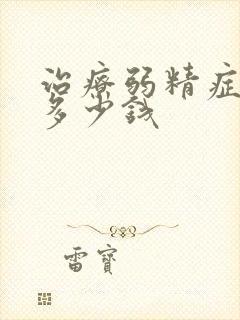 治療弱精症
多少錢
雷寶